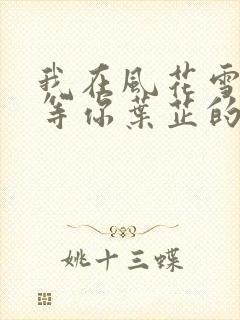 我在風花雪
等你葉芷的
姚十三蝶